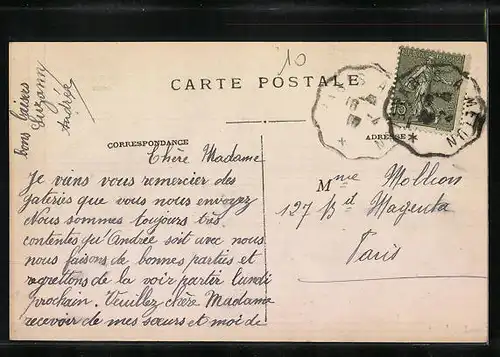 10
CARTE POSTALE
CORRESPONDANCE
ADRESSE
Chère Madame
Je viens vous remercier des
galeries que vous nous envoyez
Nous sommes toujours très
contentes qu'Andrée soit avec nous
nous faisons de bonnes parties et
regrettons de la voir partir lundi
prochain. Veuillez chère Madame
recevoir de mes sœurs et moi de
bons baisers
Suzanne
Andrée
Mme Mollion
127 Bd Magenta
Paris
A MELUN